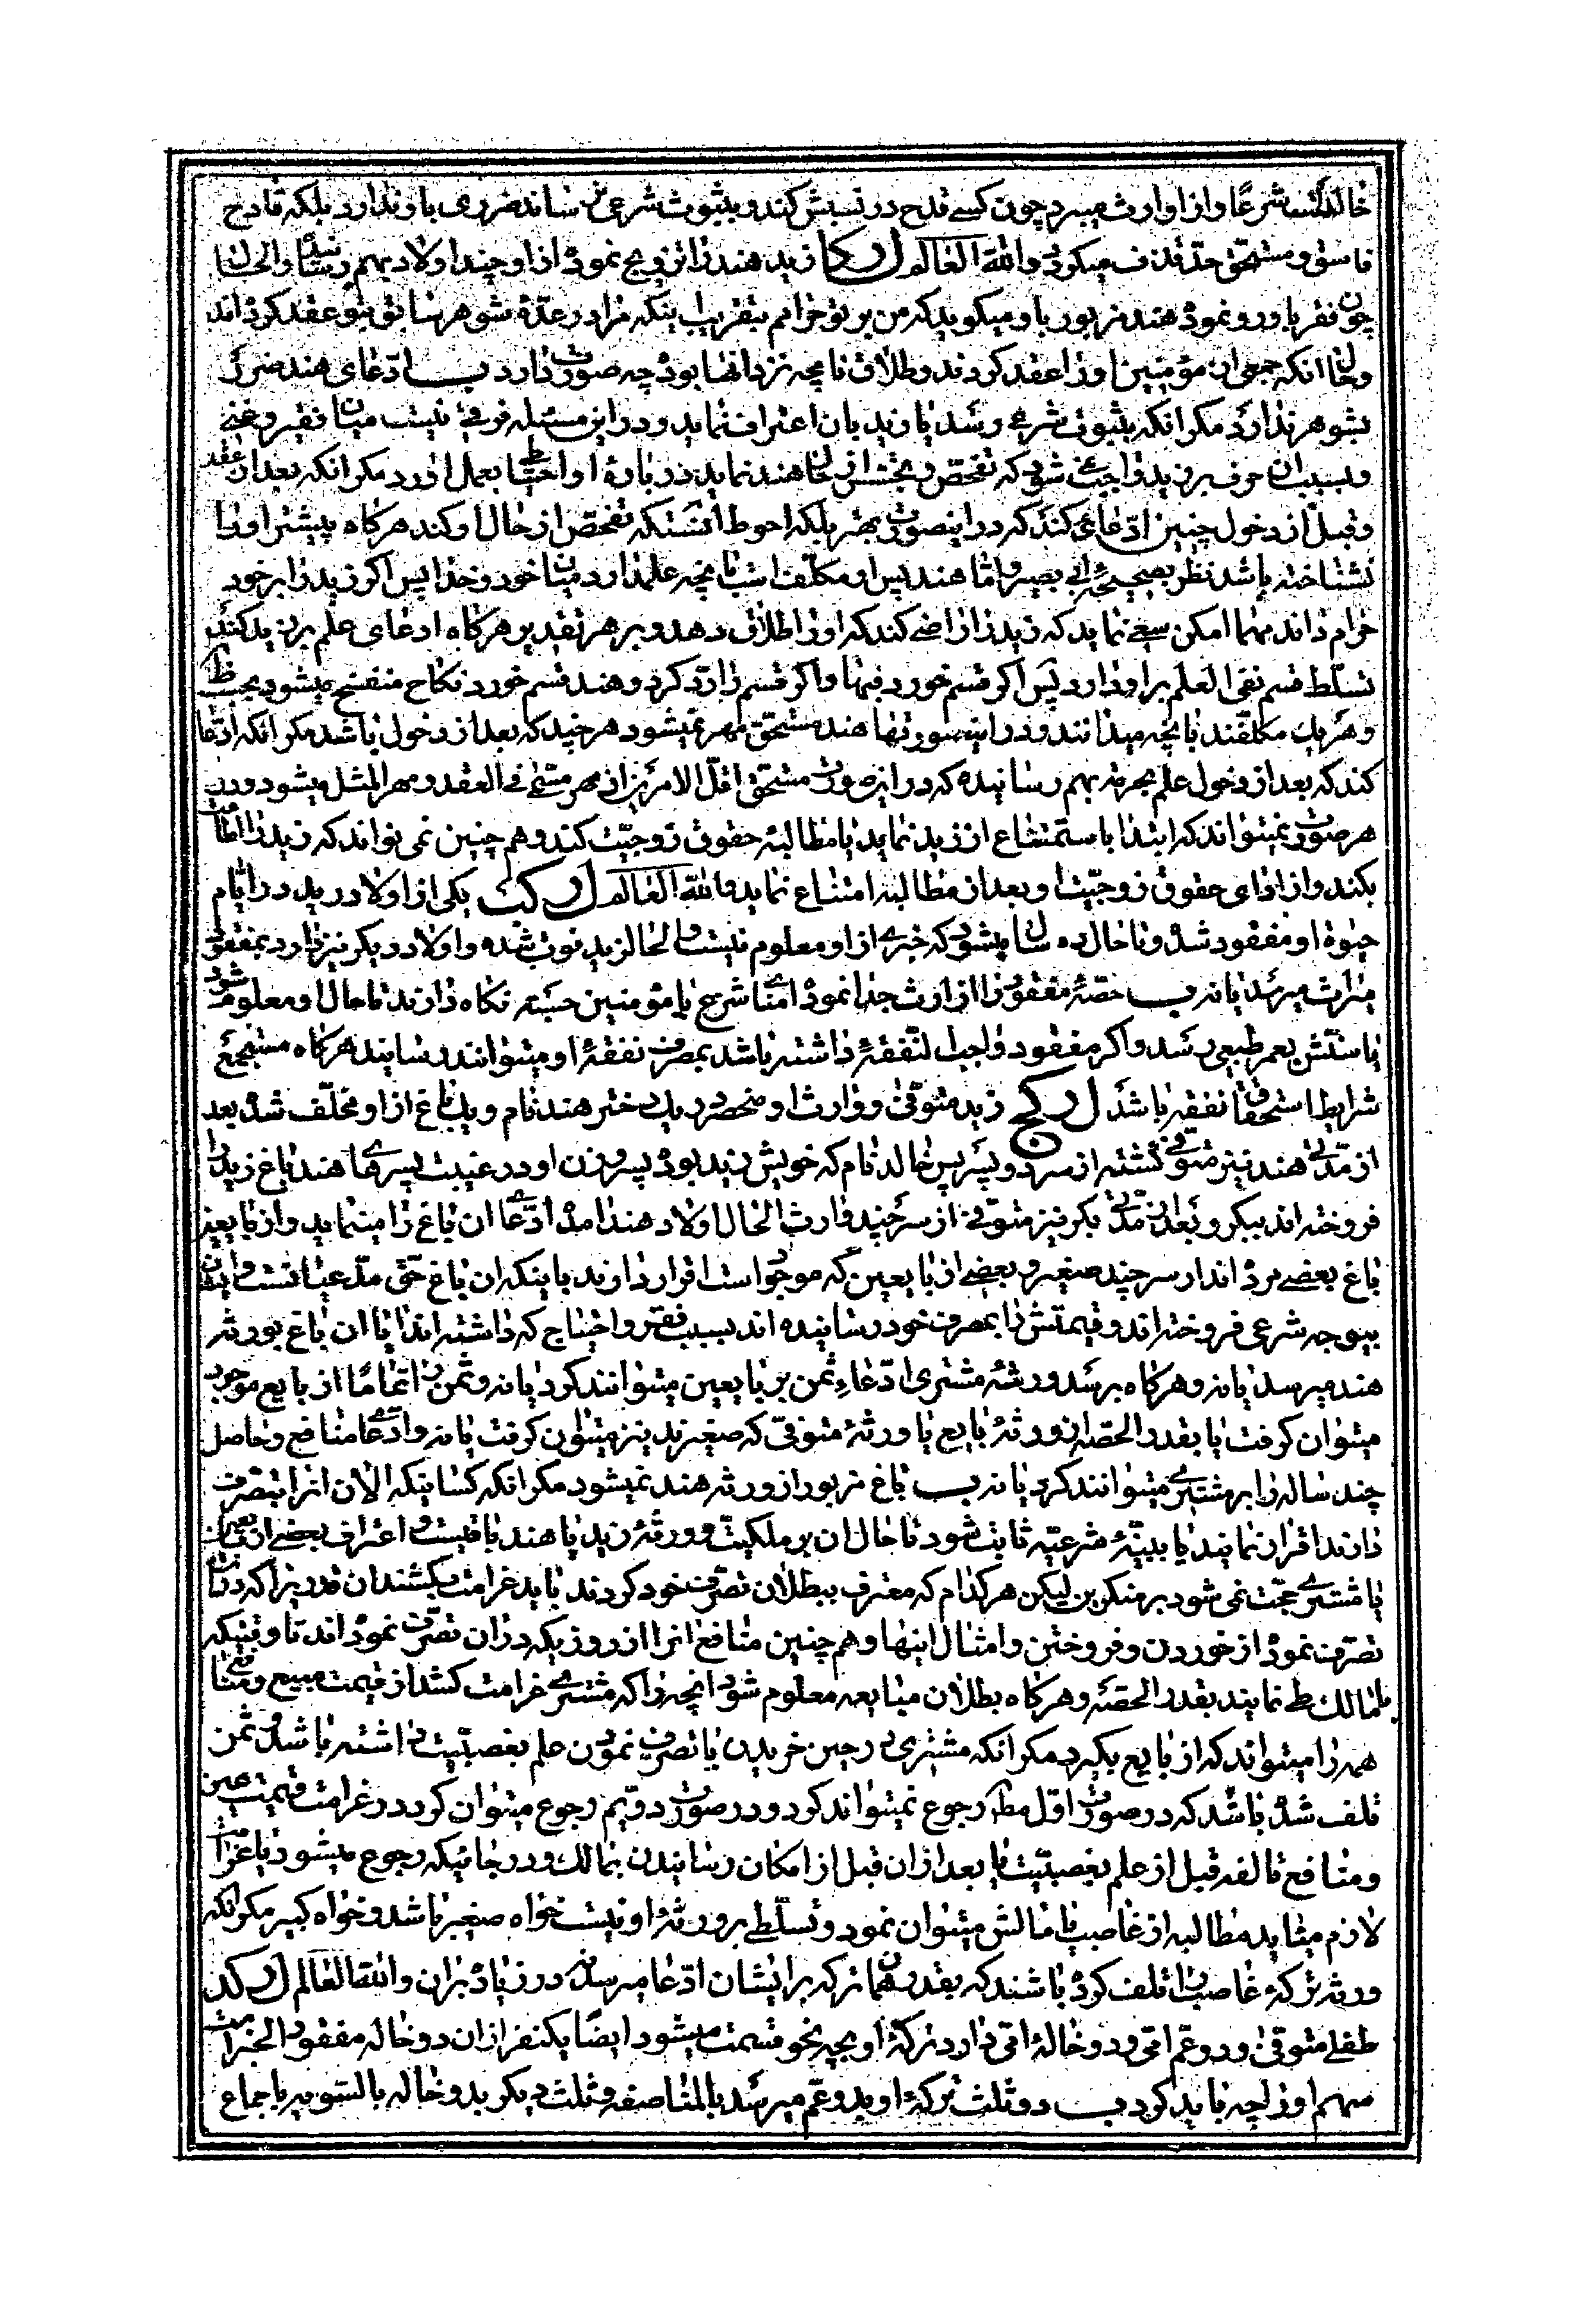 خالد است شرعًا و از او ارث میبرد چون کسے قدح در نسبش کند و بثبوت شرعی نرساند ضرری باو ندارد بلکه قادح
فاسق و مستحقّ حدّ قذف میکردد والله العالم زید هند را تزویج نموده از او چند اولاد بهم رسانید و الحال
چون فقر باو رو نموده هند مزبور باو میکوید که من بر تو حرامم بتقریب اینکه مرا در عدّهٔ شوهر سابق بتو عقد کرده اند
و حال انکه جمعی از مؤمنین او را عقد کردند و طلاق نامچه نزد انها بوده چه صورت دارد ادّعای هند ضرر
بشوهر ندارد مکر انکه بثبوت شرعی رسد یا زید بان اعتراف نماید و در این مسئله فرقی نیست میان فقیر و غنی
و بسبب ان حرف بر زید واجب نمیشود که تفحّص و تجسّس از حال هند نماید در بارهٔ او احتیاط بعمل اورد مکر انکه بعد از عقد
و قبل از دخول چنین ادّعائی کند که در اینصورت بهتر بلکه احوط انستکه تفحّص از حال او کند هرکاه پیشتر او را
نشناخته باشد نظر بصحیحهٔ ابی بصیر و امّا هند پس او مکلّف است بانچه علم دارد میان خود و خدا پس اکر زید را بر خود
حرام داند مهما امکن سعی نماید که زید را راضی کند که او را طلاق دهد و بر هر تقدیر هرکاه ادعای علم بر زید کند
تسلّط قسم نفی العلم بر او دارد پس اکر قسم خورد فبها و اکر قسم را ردّ کرد و هند قسم خورد نکاح منفسخ میشود بحسب ظاهر
و هر یک مکلّفند بانچه میدانند و در اینصورتها هند مستحقّ مهر نمیشود هر چند که بعد از دخول باشد مکر انکه ادّعا
کند که بعد از دخول علم بحرمة بهم رسانیده که در این صورت مستحقّ اقلّ الامرین از مهر مسمّی فی العقد و مهر المثل میشود و در
هر صورت نمیتواند که ابتدا باستمتاع از زید نماید یا مطالبهٔ حقوق زوجیّت کند و هم چنین نمی تواند که زید را اطاعت
بکند و از ادای حقوق زوجیّت او بعد از مطالبه امتناع نماید والله العالم یکی از اولاد زید در ایّام
حیوة او مفقود شده و تا حال ده سال میشود که خبری از او معلوم نیست و الحال زید فوت شده و اولاد دیکر نیز دارد بمفقود
میراث میرسد یا نه حصّهٔ مفقود را از ارث جدا نموده امنای شرع یا مؤمنین حسبة نکاه دارند تا حال او معلوم شود
یا سنّش بعمر طبیعی رسد و اکر مفقود واجب النّفقهٔ داشته باشد بمصرف نفقهٔ او میتوانند رسانید هرکاه مستجمع
شرایط استحقاق نفقه باشد زید متوفّی و وارث او منحصر در یک دختر هند نام و یک باغ از او مخلّف شده بعد
از مدّتی هند نیز متوفّی کشته از سر دو پسر پس خالد نام که خویش زید بوده پسر و زن او در غیبت پسرهای هند باغ زید را
فروخته اند ببکر و بعد از مدّتی بکر نیز متوفّی از سر چند وارث الحال اولاد هند امده ادّعای ان باغ را مینماید و از بایعین
باغ بعضی مرده اند از سر چند صغیر و بعضی از بایعین که موجود است اقرار دارند باینکه ان باغ حقّ مدّعیانست و ایشان
بیوجه شرعی فروخته اند و قیمتش را بمصرف خود رسانیده اند بسبب فقر و احتیاج که داشته اند ایا ان باغ بورثه
هند میرسد یا نه و هرکاه برسد ورثهٔ مشتری ادّعاءِ ثمن بر بایعین میتوانند کرد یا نه و ثمن را تماما از بایع موجود
میتوان کرفت یا بقدر الحصّه از ورثهٔ بایع یا ورثهٔ متوفّی که صغیرند نیز میتوان کرفت یا نه و ادّعای منافع و حاصل
چند ساله را بر مشتری میتوانند کرد یا نه باغ مزبور از ورثه هند نمیشود مکر انکه کسانیکه الان انرا بتصرف
دارند اقرار نمایند یا ببیّنهٔ شرعیّه ثابت شود تا حال ان بر ملکیّت ورثهٔ زید یا هند باقیست و اعتراف بعضی از بایعان
یا مشتری حجّت نمی شود بر منکرین لیکن هر کدام که معترف ببطلان تصرّف خود کردند باید غرامت بکشند ان قدریرا که دران
تصرّف نموده از خوردن و فروختن و امثال اینها و هم چنین منافع انرا از روزیکه دران تصرّف نموده اند تا وقتیکه
بامالک طی نمایند بقدر الحصّه و هرکاه بطلان مبایعه معلوم شود انچه را که مشتری غرامت کشد از قیمت مبیع و منافع
همه را میتواند که از بایع بکیرد مکر انکه مشتری در حین خریدن یا تصرف نمودن علم بغصبیّت داشته باشد و ثمن
تلف شده باشد که در صورت اوّل مطلقا رجوع نمیتواند کرد و در صورت دویّم رجوع میتوان کرد در غرامت قیمت عین
و منافع تالفه قبل از علم بغصبیّت یا بعد از ان قبل از امکان رسانیدن بمالک و در جائیکه رجوع میشود یا غرامت
لازم میاید مطالبه از غاصب یا مالش میتوان نمود و تسلّطی بر ورثهٔ او نیست خواه صغیر باشد و خواه کبیر مکر انکه
ورثه ترکهٔ غاصب را تلف کرده باشند که بقدر همان ترکه بر ایشان ادّعا میرسد نه در زیاده بران والله العالم
طفلی متوفّی و دو عمّ امّی و دو خالهٔ امّی دارد ترکهٔ او بچه نحو قسمت میشود ایضًا یکنفر از ان دو خاله مفقود الخبر است
سهم او را چه باید کرد دو ثلث ترکهٔ او بدو عمّ میرسد بالمناصفه و ثلث دیکر بدو خاله بالسّویه باجماع